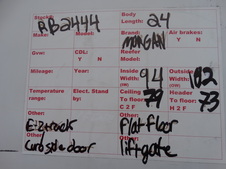 Stock#: RB2444 Body Length: 24
Make: Model: Brand: MORGAN Air brakes: Y N
Gvw: CDL: Y N Reefer Model:
Mileage: Year: Inside W 94 Outside W 102
Temperature range: Elect. Stand by: Ceiling To floor: C 2 F 79 Header To floor: H 2 F 73
Other: E-ztrack Other: Flat floor
Other: Curbside door Other: liftgate